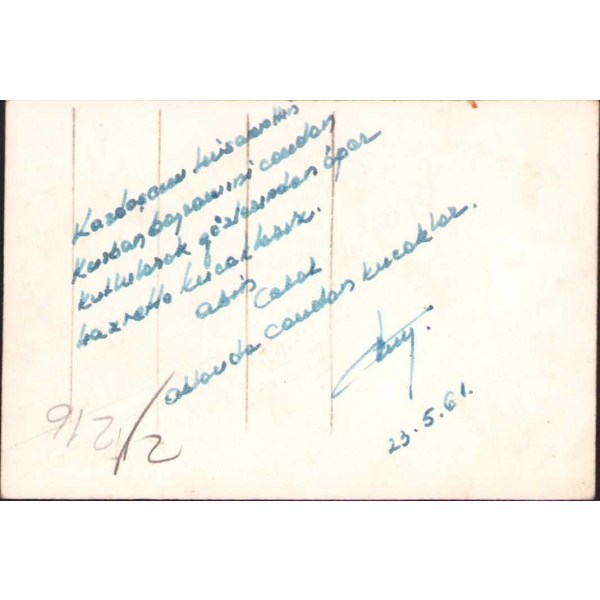 Kardeşim Hüsamettin
Kurban bayramını candan
kutlularak gözlerinden öper
hasretle kucaklarız.
abin
Celal
ablanda candan kucaklar.
23.5.61.
216
2/2